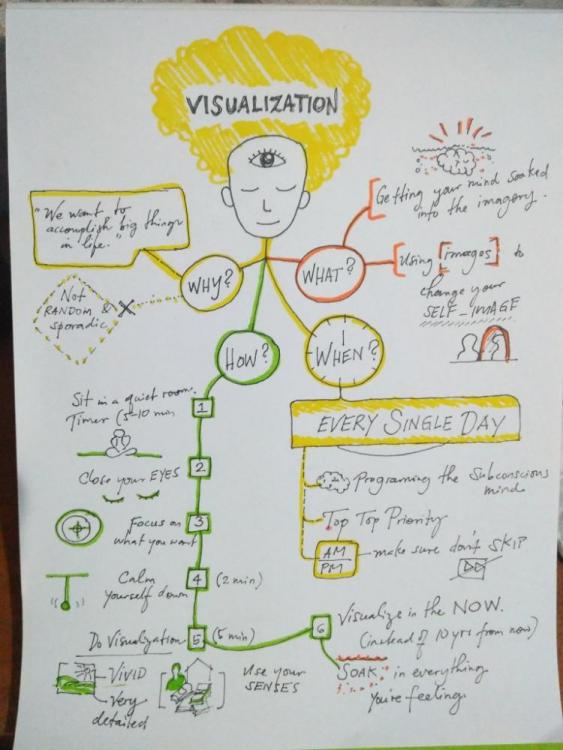 VISUALIZATION
"We want to
accomplish big things
in life."
WHY?
Not
RANDOM &
sporadic
WHAT?
Getting your mind soaked
into the imagery.
Using [images] to
change your
SELF-IMAGE
HOW?
WHEN?
EVERY SINGLE DAY
Programing the Subconscious
mind
Top Top Priority
AM
PM
make sure don't SKIP
1
Sit in a quiet room.
Timer (5-10 min
2
Close your EYES
3
Focus on
what you want
4
Calm
yourself down
(2 min)
5
Do Visualization
(5 min)
VIVID
Very
detailed
Use your
SENSES
6
Visualize in the NOW.
(instead of 10 yrs from now)
SOAK in everything
you're feeling